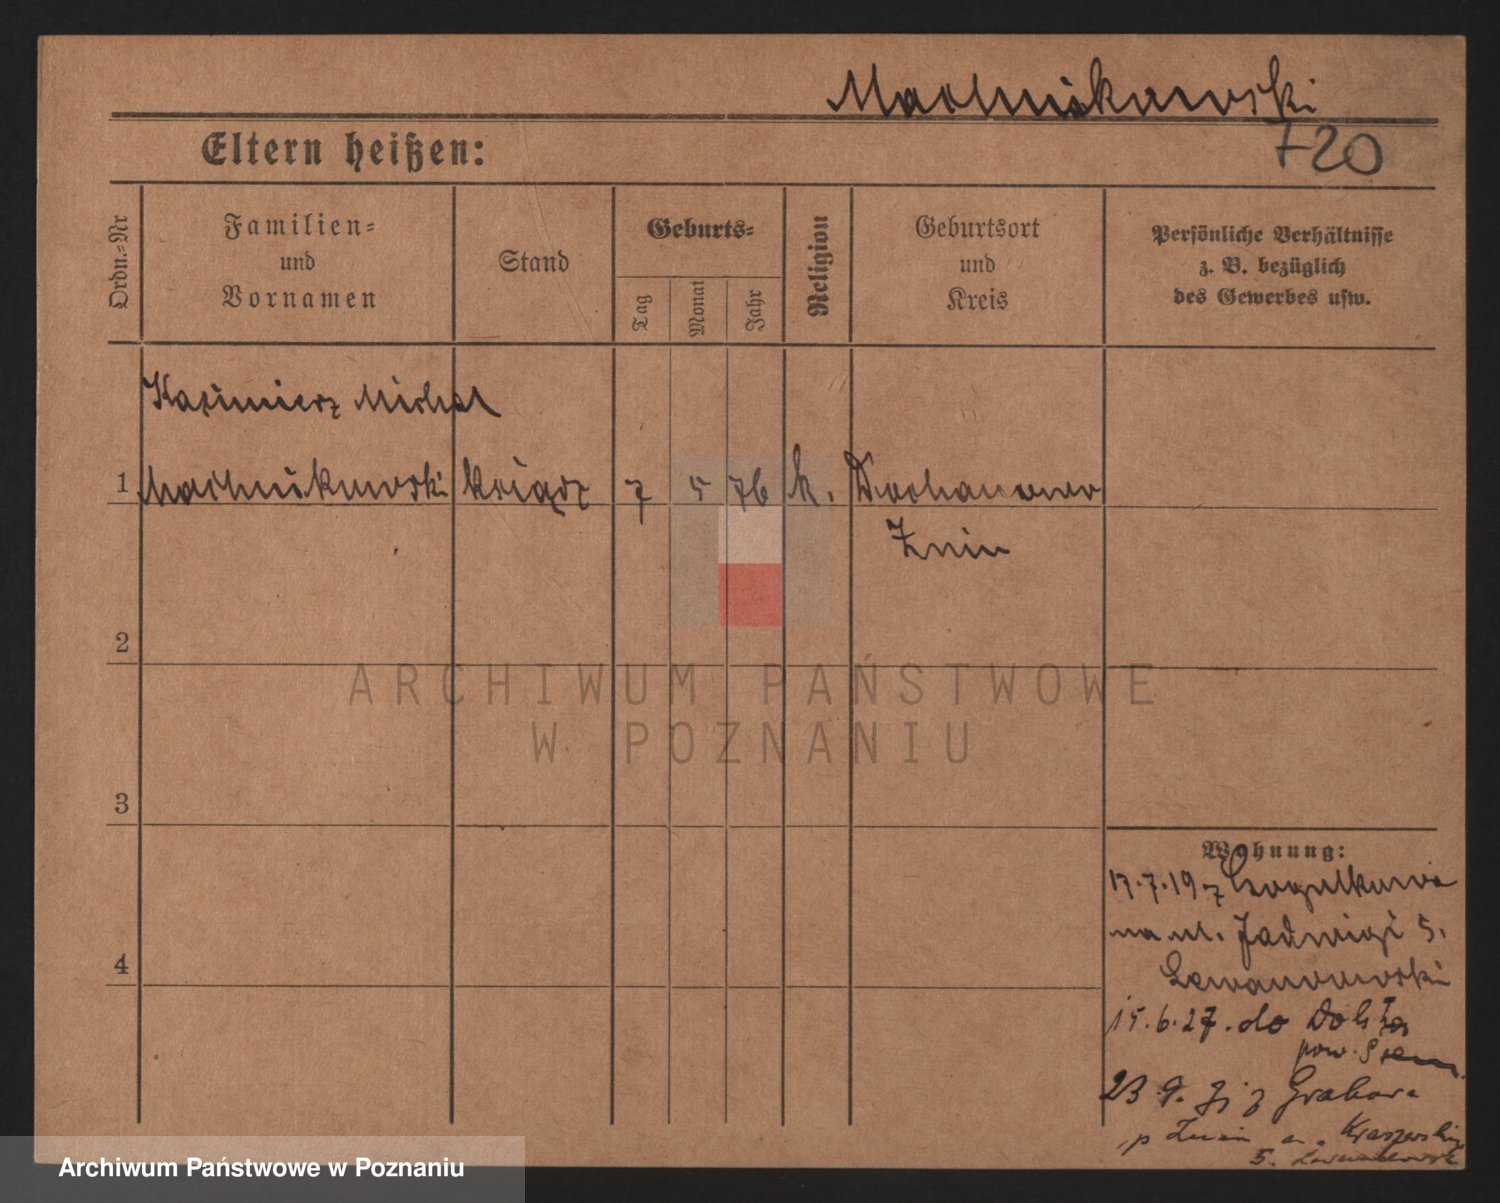 Machnikowski
720
Eltern heißen:
Ordn.-Nr
Familien- und Vornamen
Stand
Geburts-
Tag
Monat
Jahr
Religion
Geburtsort und Kreis
Persönliche Verhältnisse z. B. bezüglich des Gewerbes usw.
Kazimierz Michał
1 Machnikowski ksiądz 7 5 76 k.
Żnin
2
3
4
ARCHIWUM PAŃSTWOWE
W POZNANIU
Wohnung:
17.7.19 z
na ul. Jadwigi 5.
Lewandowski
15.6.27. do
pow.
23 9. z Grabowa
p Żnin Kraszewskiego
5.
Archiwum Państwowe w Poznaniu